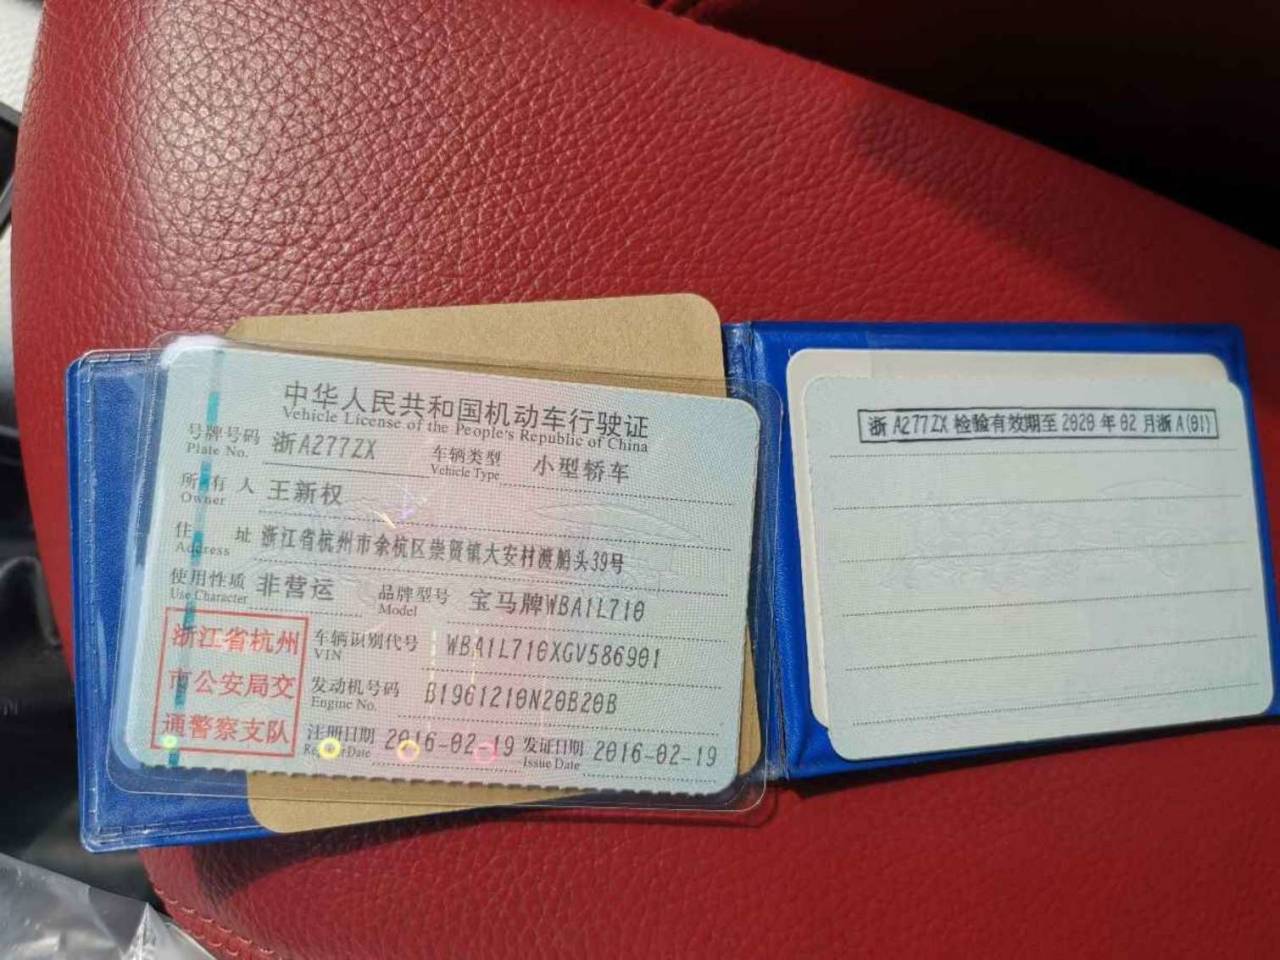 中华人民共和国机动车行驶证
Vehicle License of the People's Republic of China
号牌号码 浙A277ZX 车辆类型 小型轿车
Plate No. Vehicle Type
所有人 王新权
Owner
住址 浙江省杭州市余杭区崇贤镇大安村渡船头39号
Address
使用性质 非营运 品牌型号 宝马牌WBA1L710
Use Character Model
浙江省杭州
市公安局交
通警察支队
车辆识别代号 WBA1L710XGV586901
VIN
发动机号码 B1961210N20B20B
Engine No.
注册日期 2016-02-19 发证日期 2016-02-19
Register Date Issue Date
浙A277ZX检验有效期至2020年02月浙A(01)